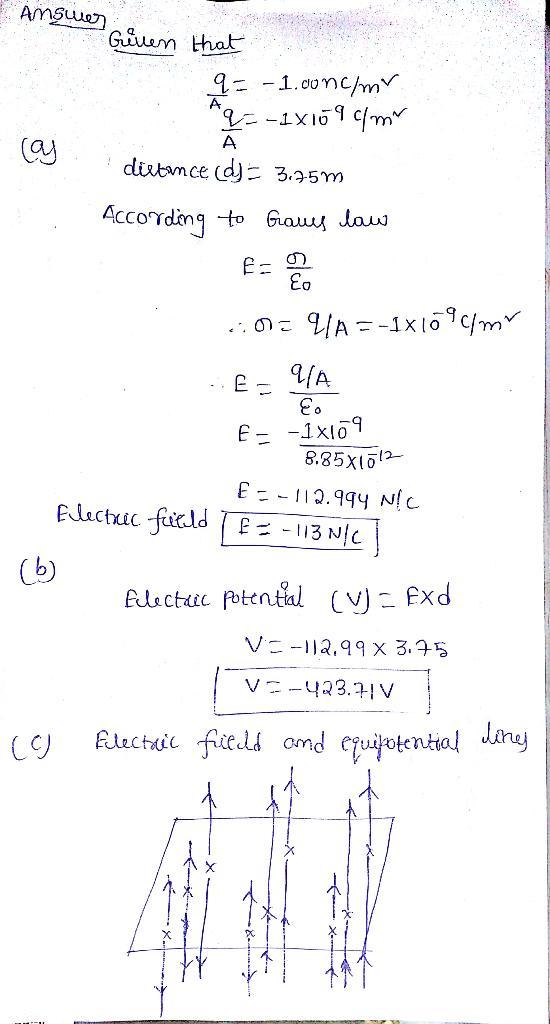 Answer
Given that
q/A = -1.00nc/m²
q/A = -1×10⁻⁹ c/m²
(a)
distance (d) = 3.75m
According to Gauss law
E = σ/ε₀
∴ σ = q/A = -1×10⁻⁹ c/m²
∴ E = (q/A)/ε₀
E = (-1×10⁻⁹)/(8.85×10⁻¹²)
E = -112.994 N/C
Electric field E = -113 N/C
(b)
Electric potential (V) = E×d
V = -112.99 × 3.75
V = -423.71V
(c) Electric field and equipotential lines